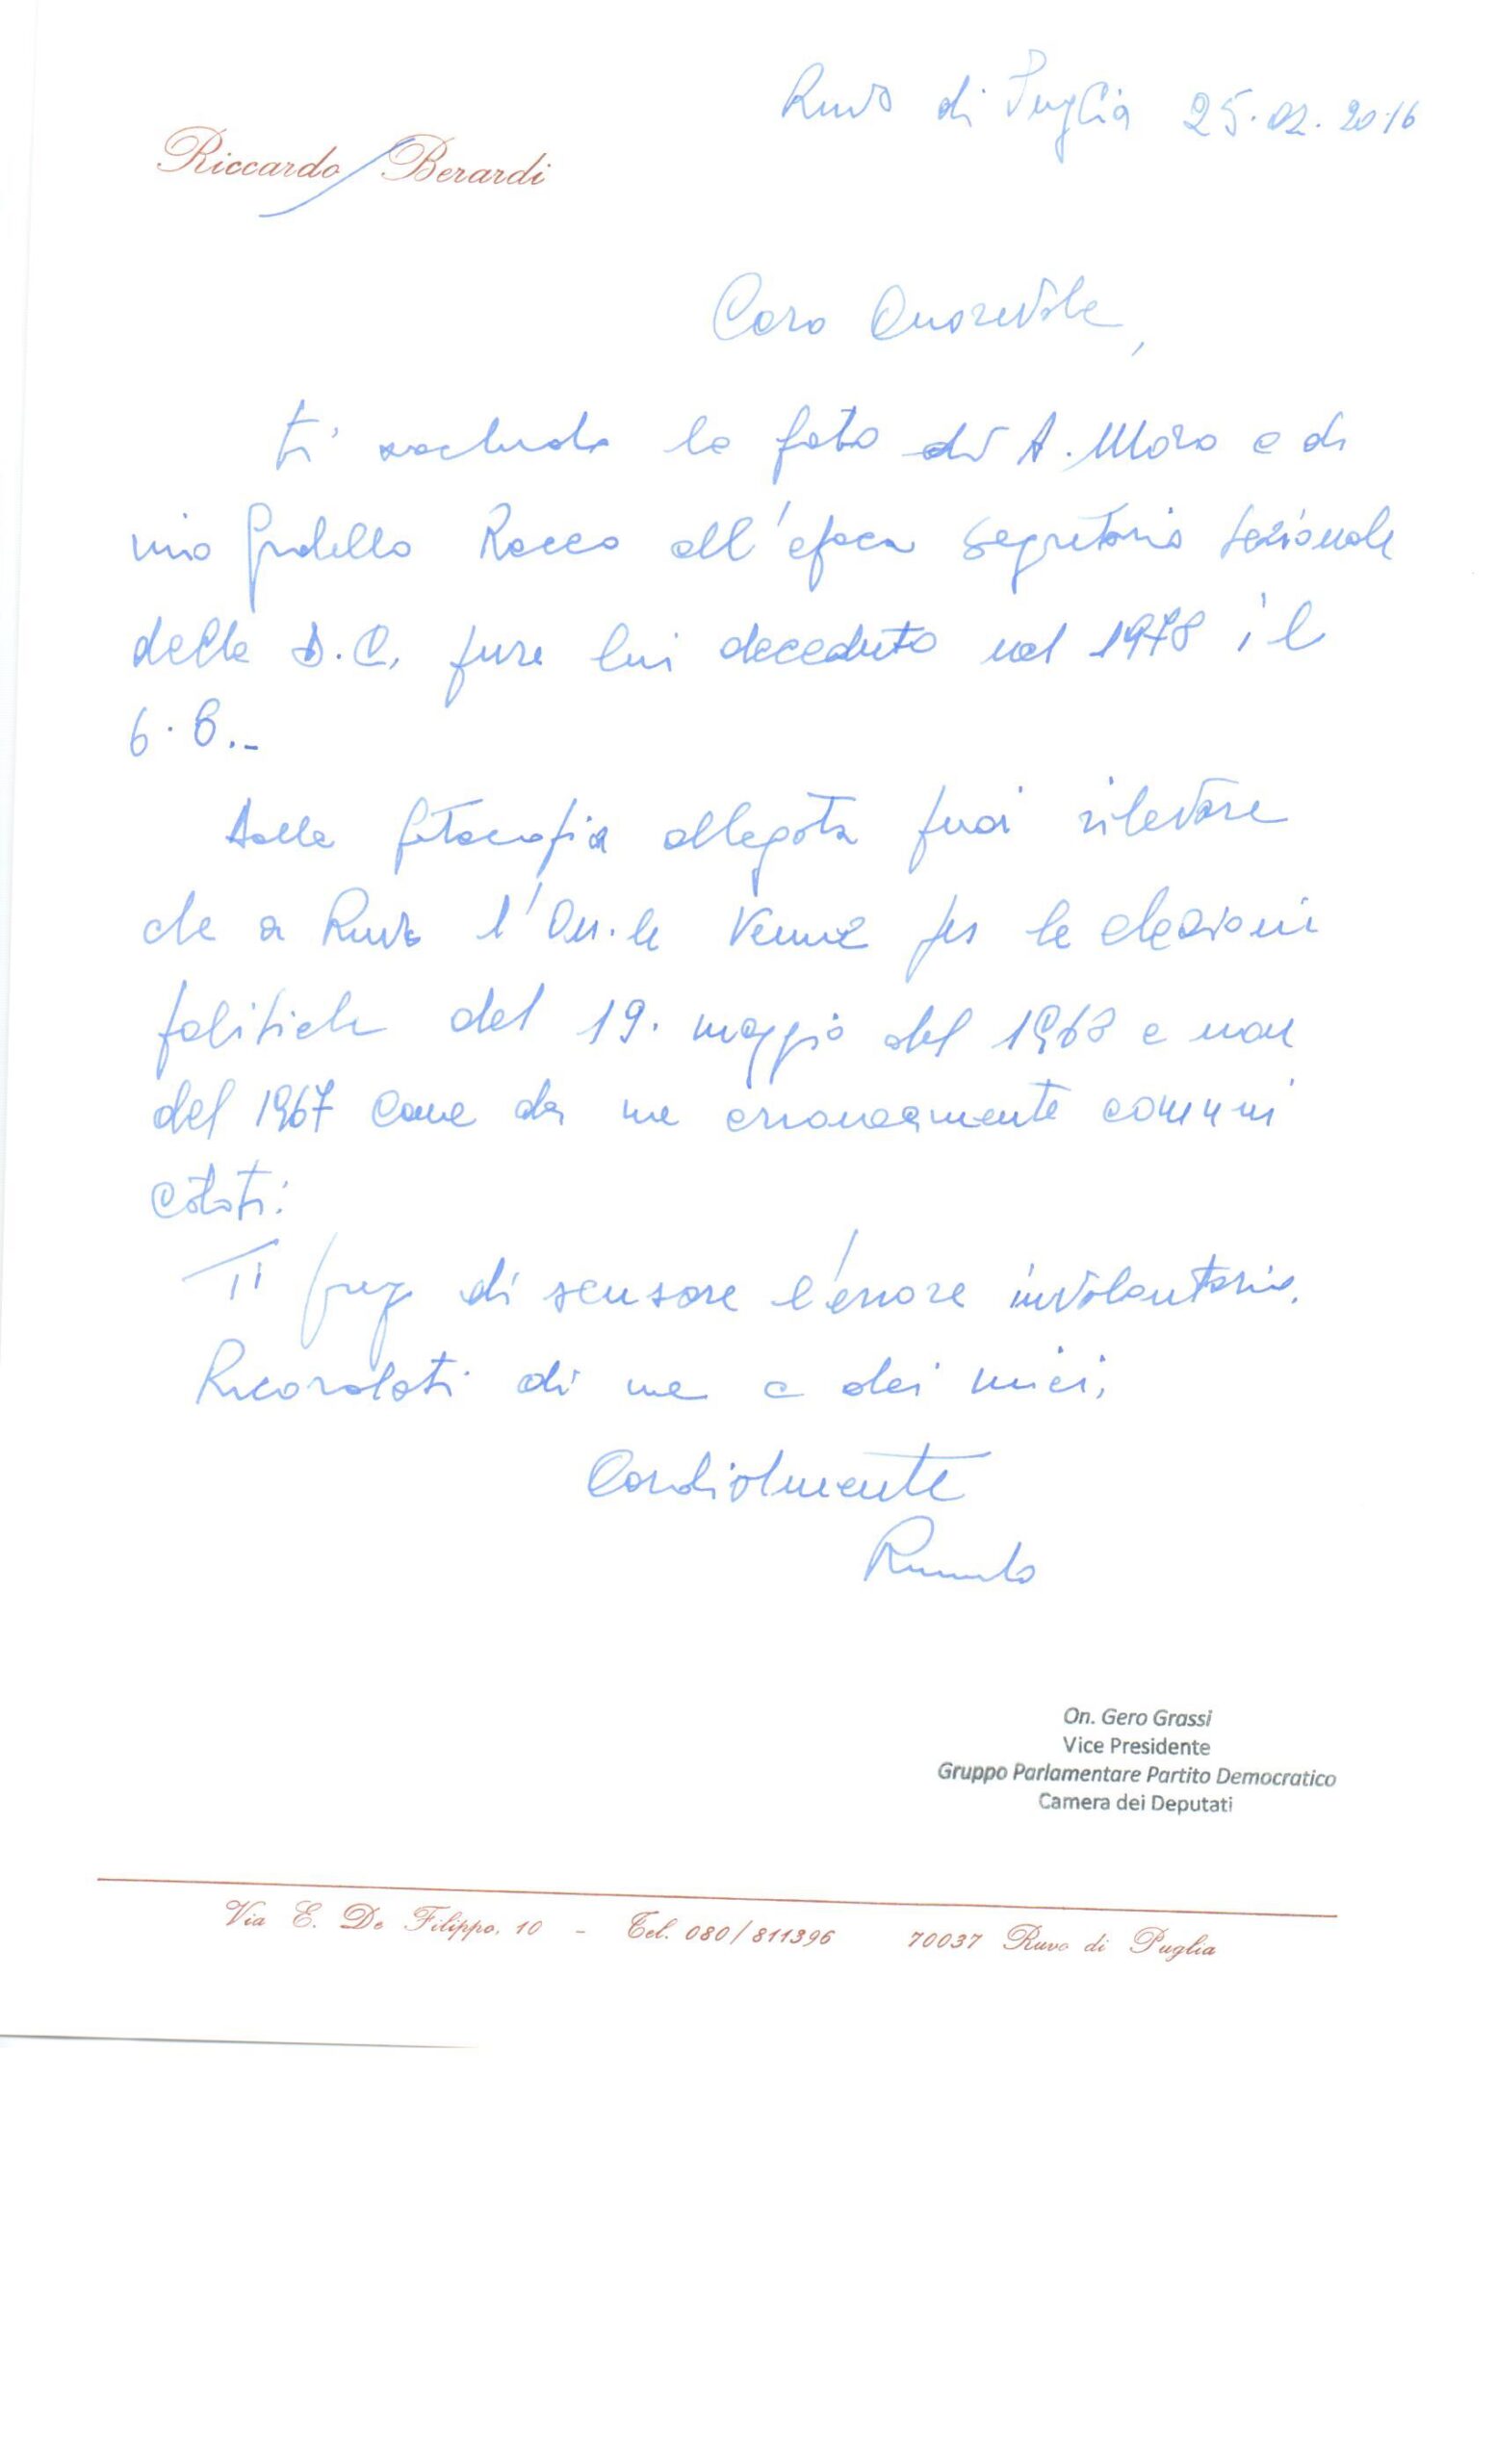 Ruvo di Puglia 25.02.2016
Riccardo Berardi
Caro Onorevole,
ti accludo la foto di A. Moro e di
mio fratello Rocco all'epoca segretario sezionale
della D.C. pure lui deceduto nel 1978 il
6.6.-
Dalla fotografia allegata puoi rilevare
che a Ruvo l'On.le venne per le elezioni
politiche del 19. maggio del 1968 e non
del 1967 come da me erroneamente comuni
catoti.
Ti prego di scusare l'errore involontario.
Ricordati di me e dei miei,
Cordialmente
On. Gero Grassi
Vice Presidente
Gruppo Parlamentare Partito Democratico
Camera dei Deputati
Via E. De Filippo, 10 - Tel. 080/811396 70037 Ruvo di Puglia